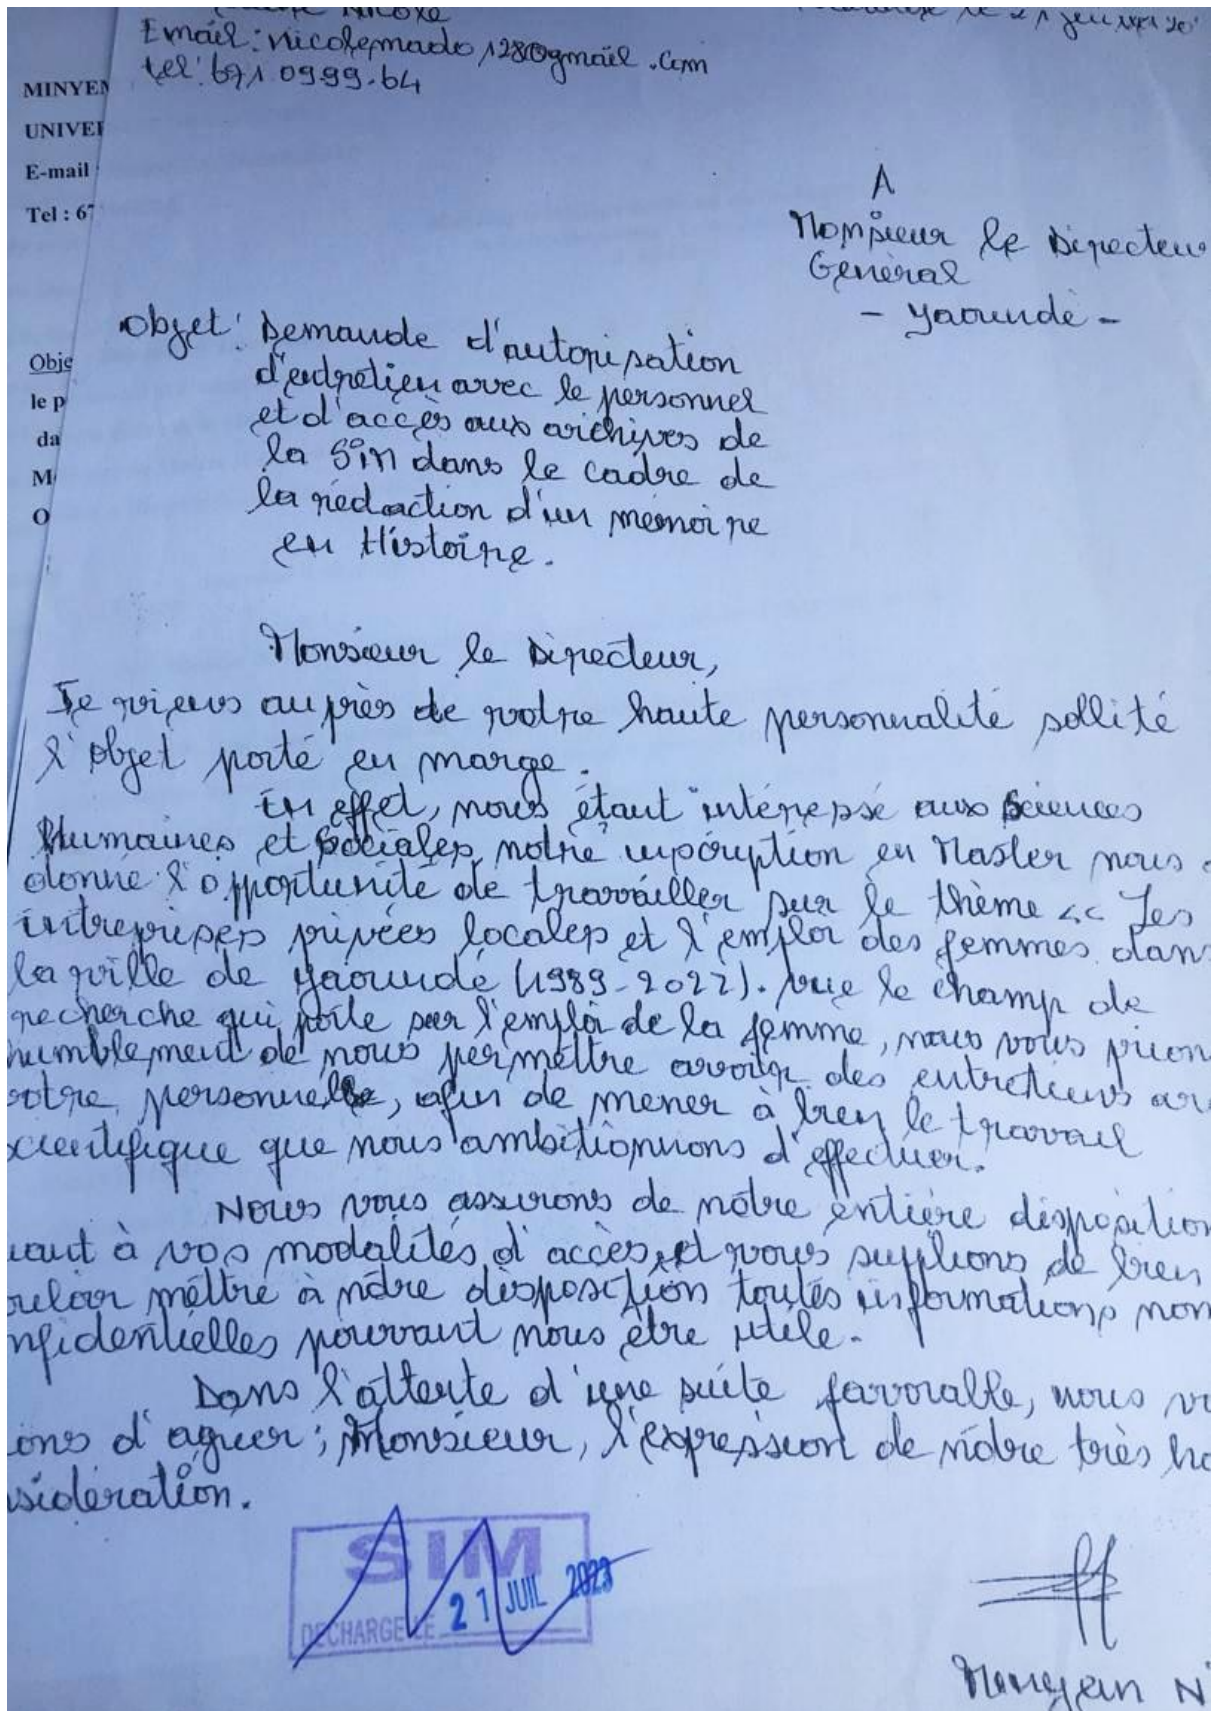 Email: nicolemado128@gmail.com
tel: 671.09.99.64
MINYEN
UNIVER
E-mail
Tel : 67
A
Monsieur le Directeur
Général
- Yaoundé -
Objet: Demande d'autorisation
d'entretien avec le personnel
et d'accès aux archives de
la SIM dans le cadre de
la rédaction d'un mémoire
en Histoire.
Obje
le p
da
M
O
Monsieur le Directeur,
Je viens auprès de votre haute personnalité sollité
l'objet porté en marge.
En effet, nous étant intéressé aux Sciences
Humaines et Sociales, notre inscription en Master nous a
donné l'opportunité de travailler sur le thème << Les
entreprises privées locales et l'emploi des femmes dans
la ville de Yaoundé (1989-2022). vue le champ de
recherche qui porte sur l'emploi de la femme, nous vous prion
humblement de nous permettre avoir des entretiens av
votre personnelle, afin de mener à bien le travail
scientifique que nous ambitionnons d'effectuer.
Nous vous assurons de notre entière disposition
uant à vos modalités d'accès, et vous suplions de bien
ouloir mettre à notre disposition toutes informations non
nfidentielles pouvant nous être utile.
Dans l'attente d'une suite favorable, nous v
ions d'agréer; Monsieur, l'expression de notre très ha
sidération.
SIM
DECHARGE LE 21 JUIL 2023